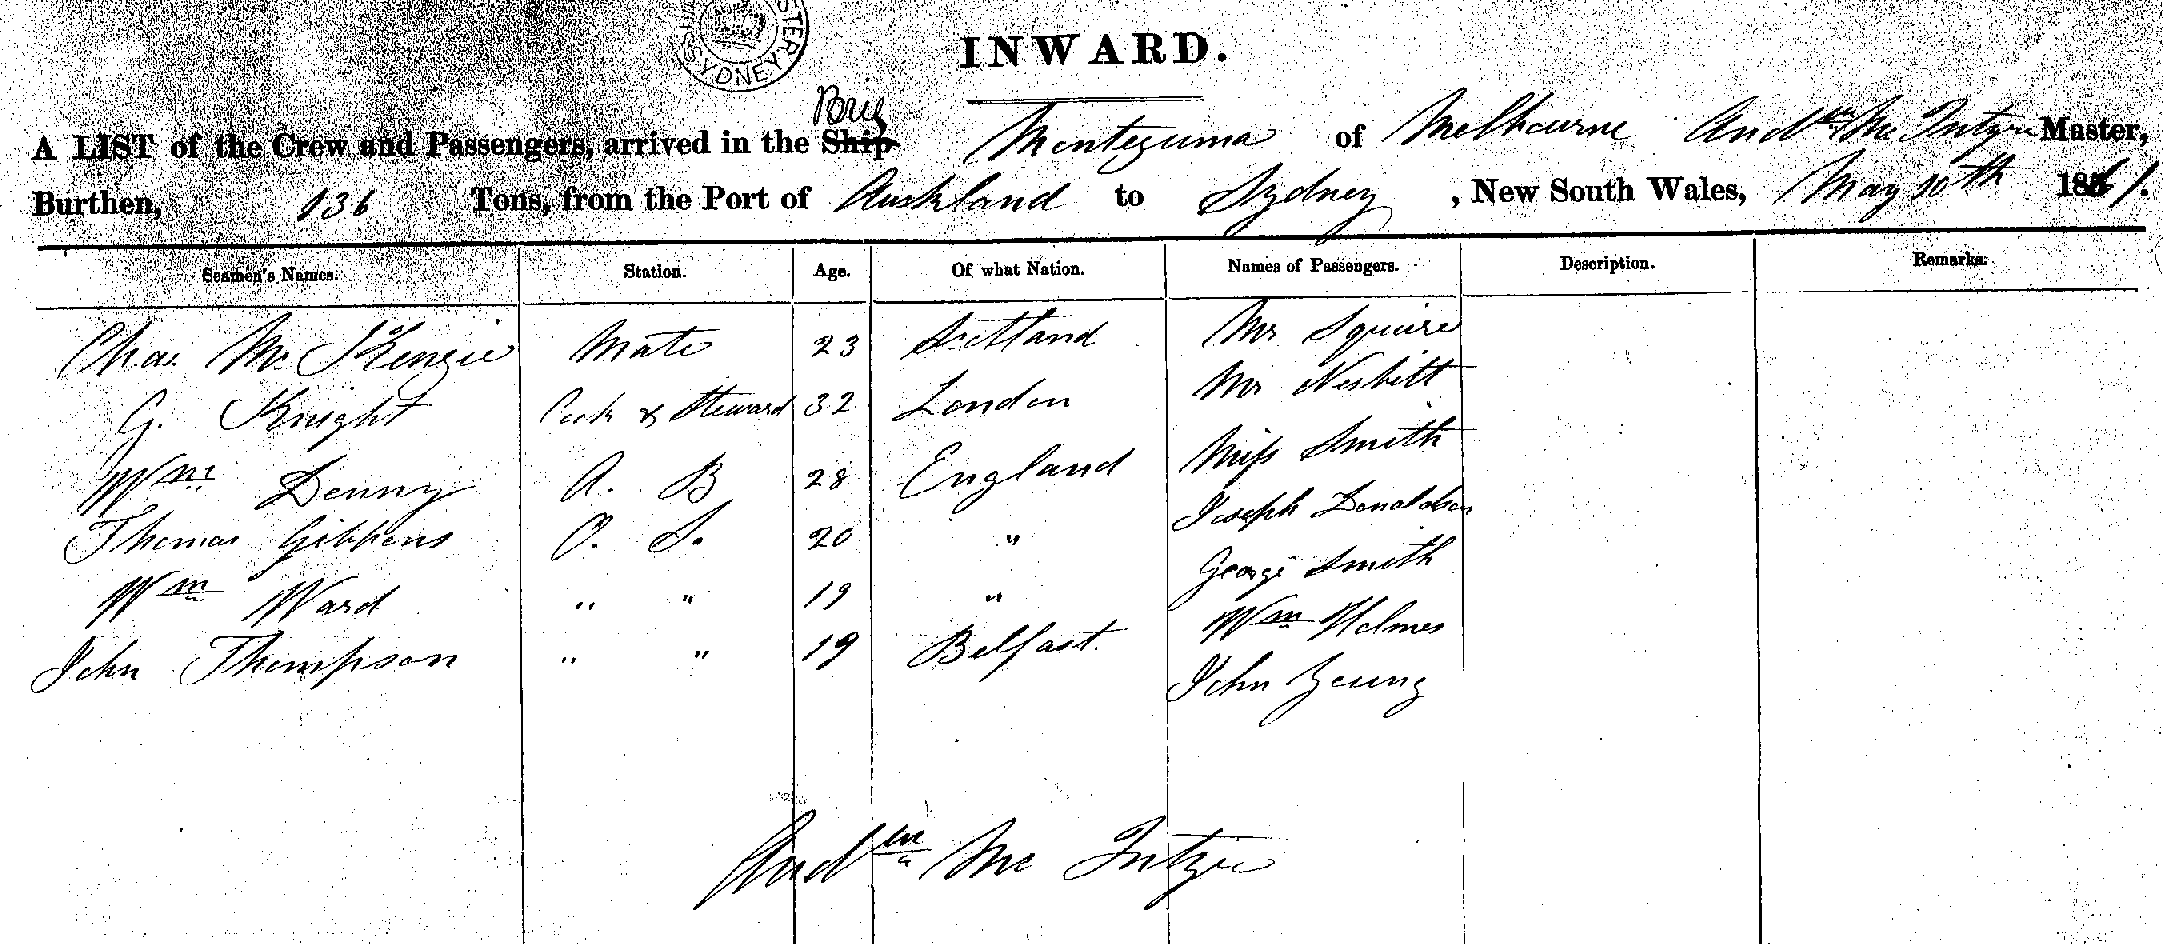 SYDNEY
INWARD.
Brig
A LIST of the Crew and Passengers, arrived in the Ship Montezuma of Melbourne Andw Mc Intyre Master,
Burthen, 136 Tons, from the Port of Auckland to Sydney, New South Wales, May 10th 1861.
Seamen's Names. Station. Age. Of what Nation. Names of Passengers. Description. Remarks.
Chas. Mc Kenzie Mate 23 Scotland Mr Squire
G. Knight Cook & Steward 32 London Mr Nesbitt
Wm Denny A. B 28 England Miss Smith
Thomas Gibbons O. S. 20 " Joseph Donaldson
Wm Ward " " 19 " George Smith
John Thompson " " 19 Belfast. Wm Holmes
John Young
Andw Mc Intyre